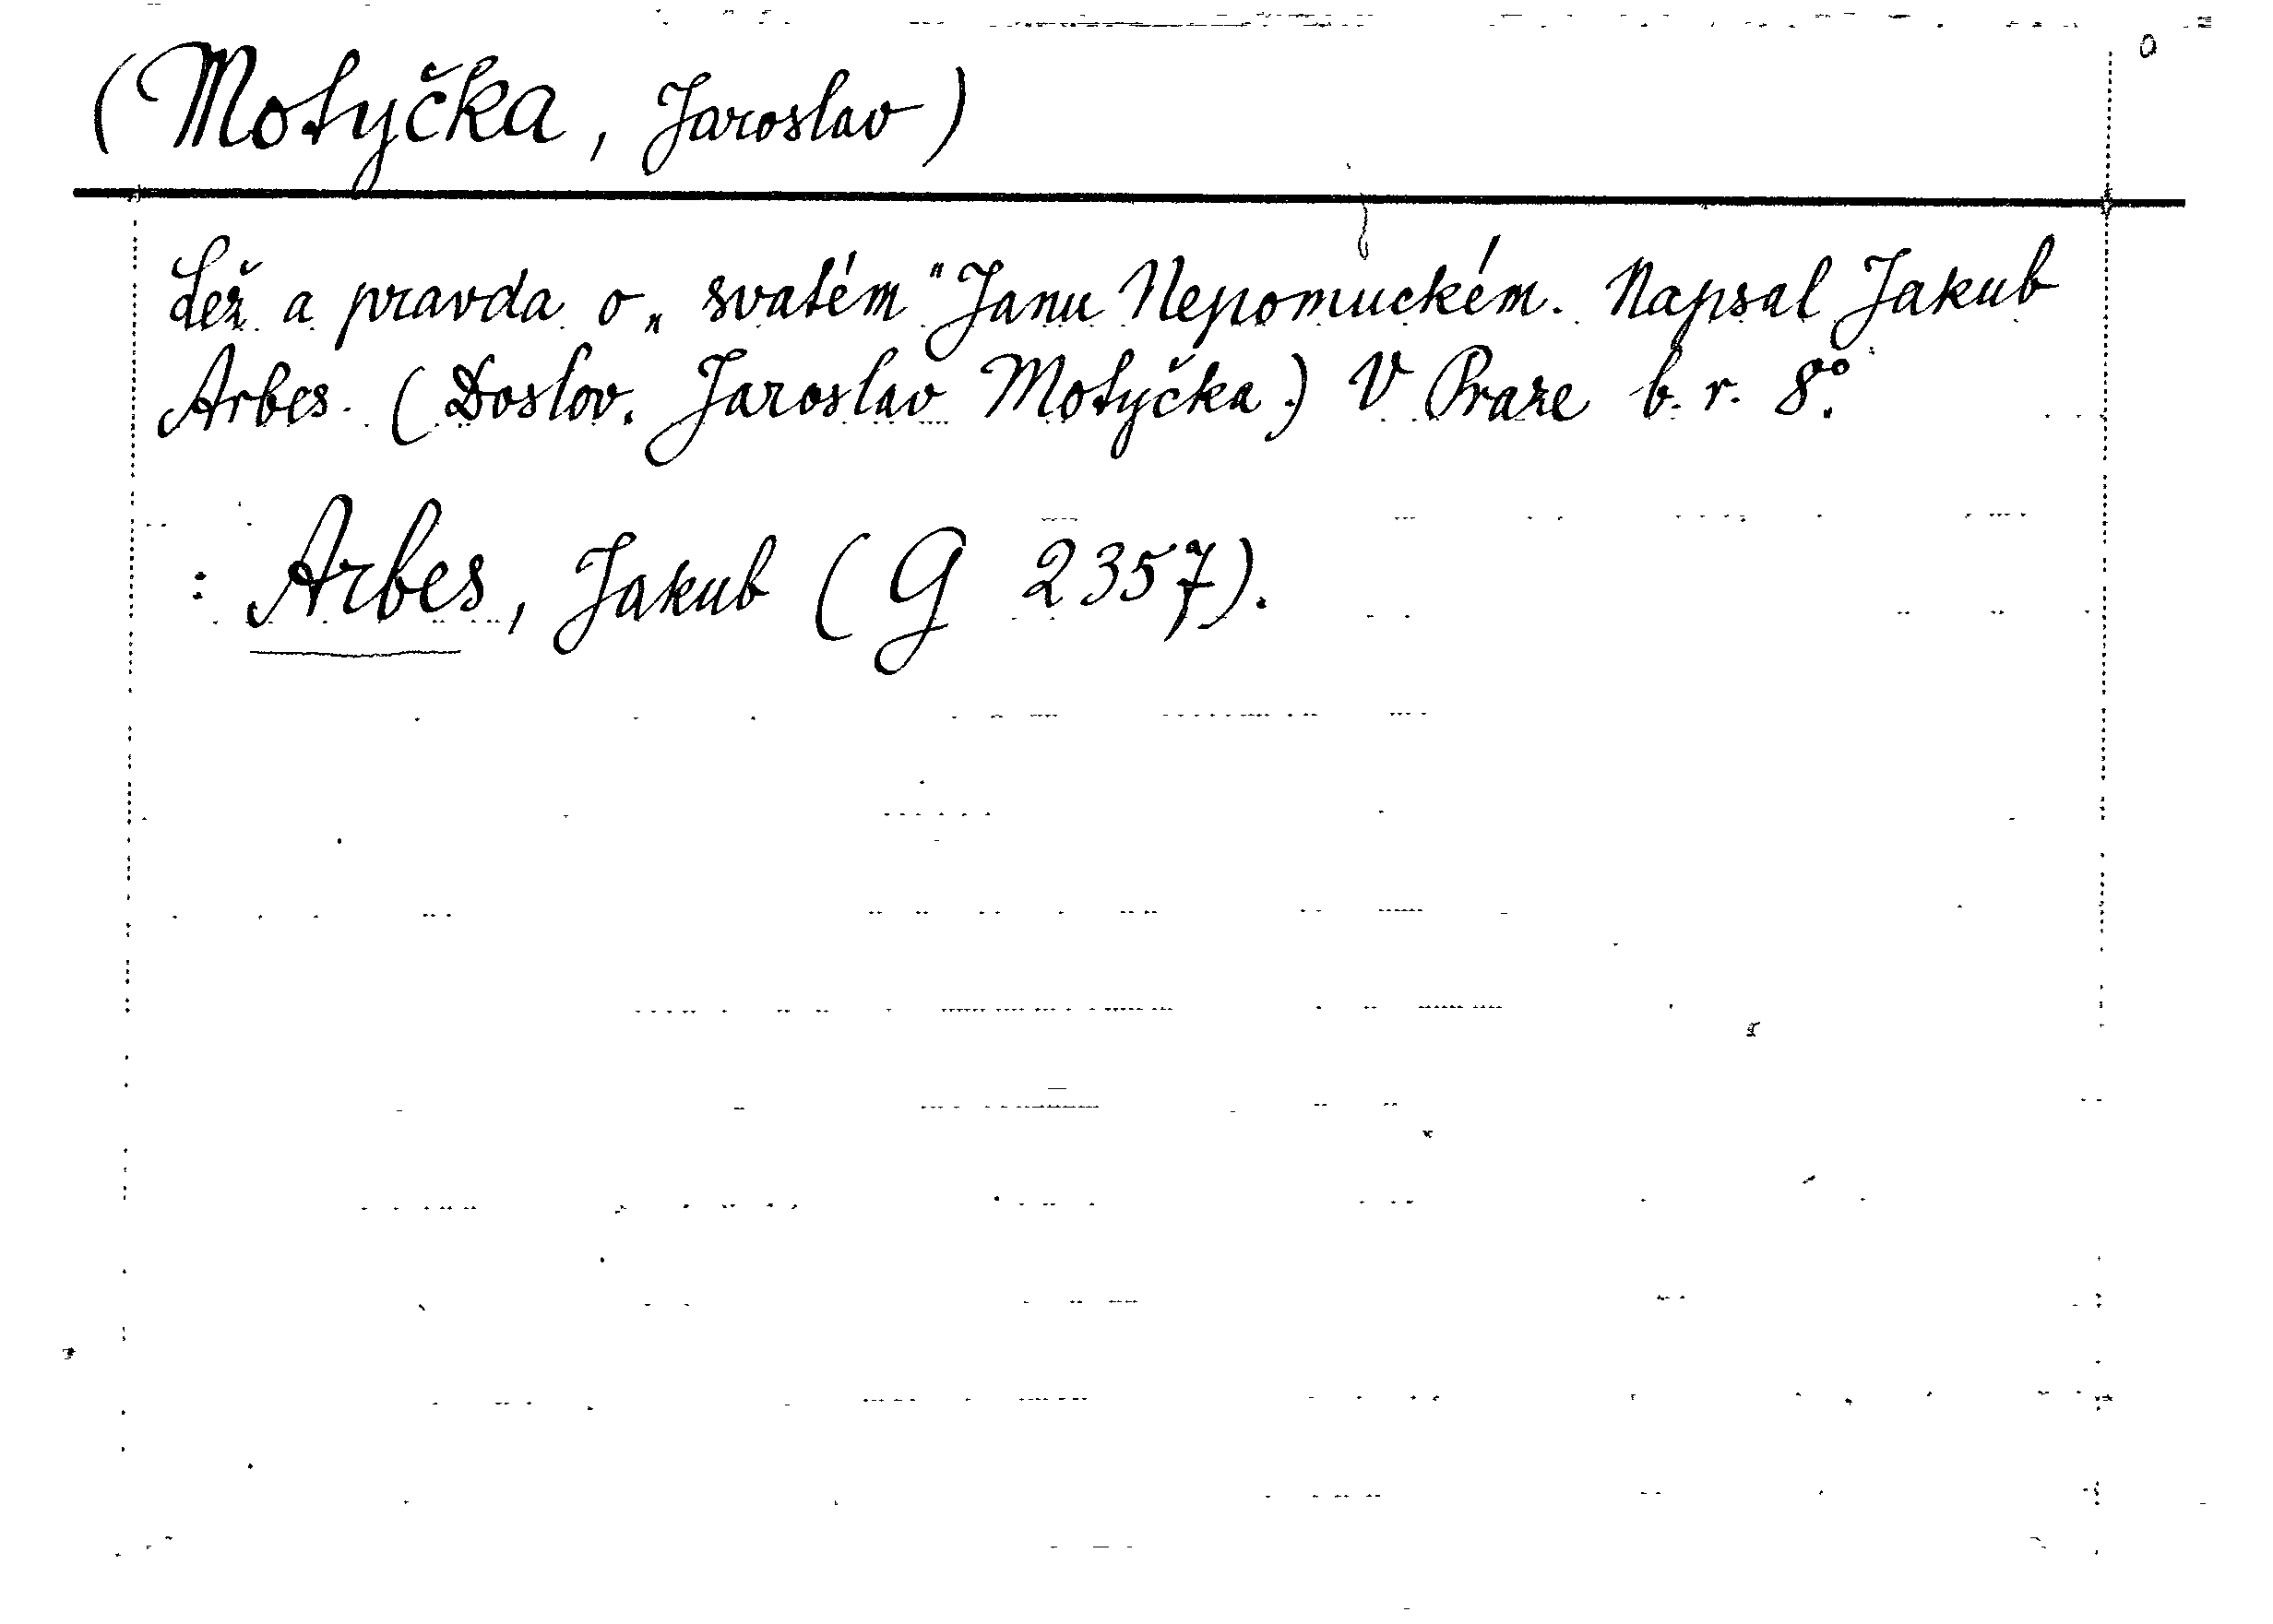 (Motyčka, Jaroslav)
Lež a pravda o „svatém" Janu Nepomuckém. Napsal Jakub
Arbes. (Doslov. Jaroslav Motyčka.) V Praze b. r. 8°.
: Arbes, Jakub (G 2357).